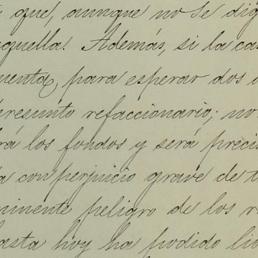 que, aunque no se dig
aquella. Además, si la ca
uenta, para esperar dos
presunto refaccionario; no
rá los fondos y será preci
a con perjuicio grave de
minente peligro de los
asta hoy ha podido